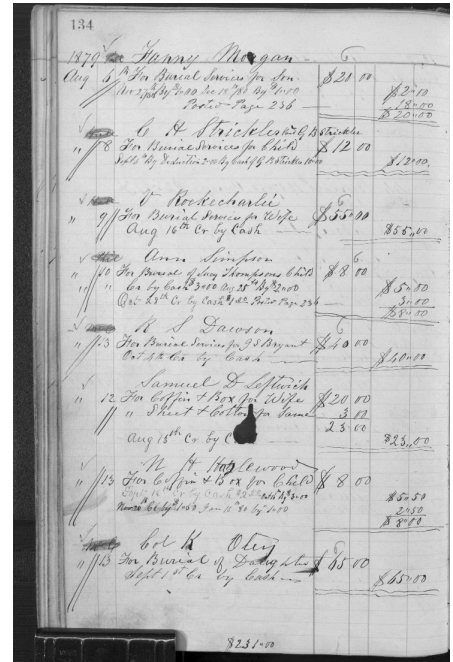 134
1879 Fanny Morgan
Aug 6th For Burial Services for Son $20 00
Nov 27th By $1.00 Jan 18th 80 By 1.00 $2.00
Posted Page 236 18.00
$20.00
C H Strickler G B Strickler
" 8 For Burial Services for Child $12 00
Sept 10 By Deduction 2.00 By Cash G B Strickler 10.00 $12.00
V Rookecharlie
" 9 For Burial Services for Wife $55.00
Aug 16th Cr by Cash $55.00
Ann Simpson
" 10 For Burial of Lucy Thompsons Child $8 00
" Cr by Cash $3.00 Aug 25th By $2.00 $5.00
Oct 28th Cr by Cash Posted Page 236 3.00
$8.00
R S Dawson
" 13 For Burial Services for J S Bryant $40 00
Oct 4th Cr by Cash $40.00
Samuel D Leftwich
" 12 For Coffin & Box for Wife $20 00
" " Sheet & Cotton for Same 3 00
23 00
Aug 15th Cr by C $23.00
N H Hazlewood
" 13 For Coffin & Box for Child $8 00
Sept Cr by Cash $5.50
Nov 26 Jan 15th 80 by 1.00 2.50
$8.00
Col K Otey
" 13 For Burial of Daughter $65 00
Sept 1st Cr by Cash $65.00
$231.00